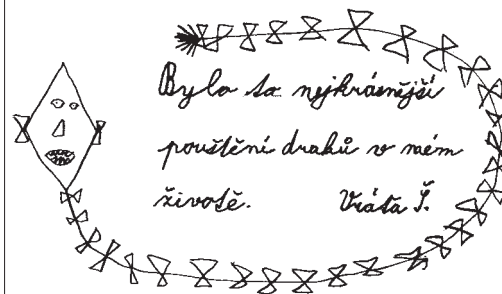 Bylo to nejkrásnější
pouštění draků v mém
životě. Vráťa Š.